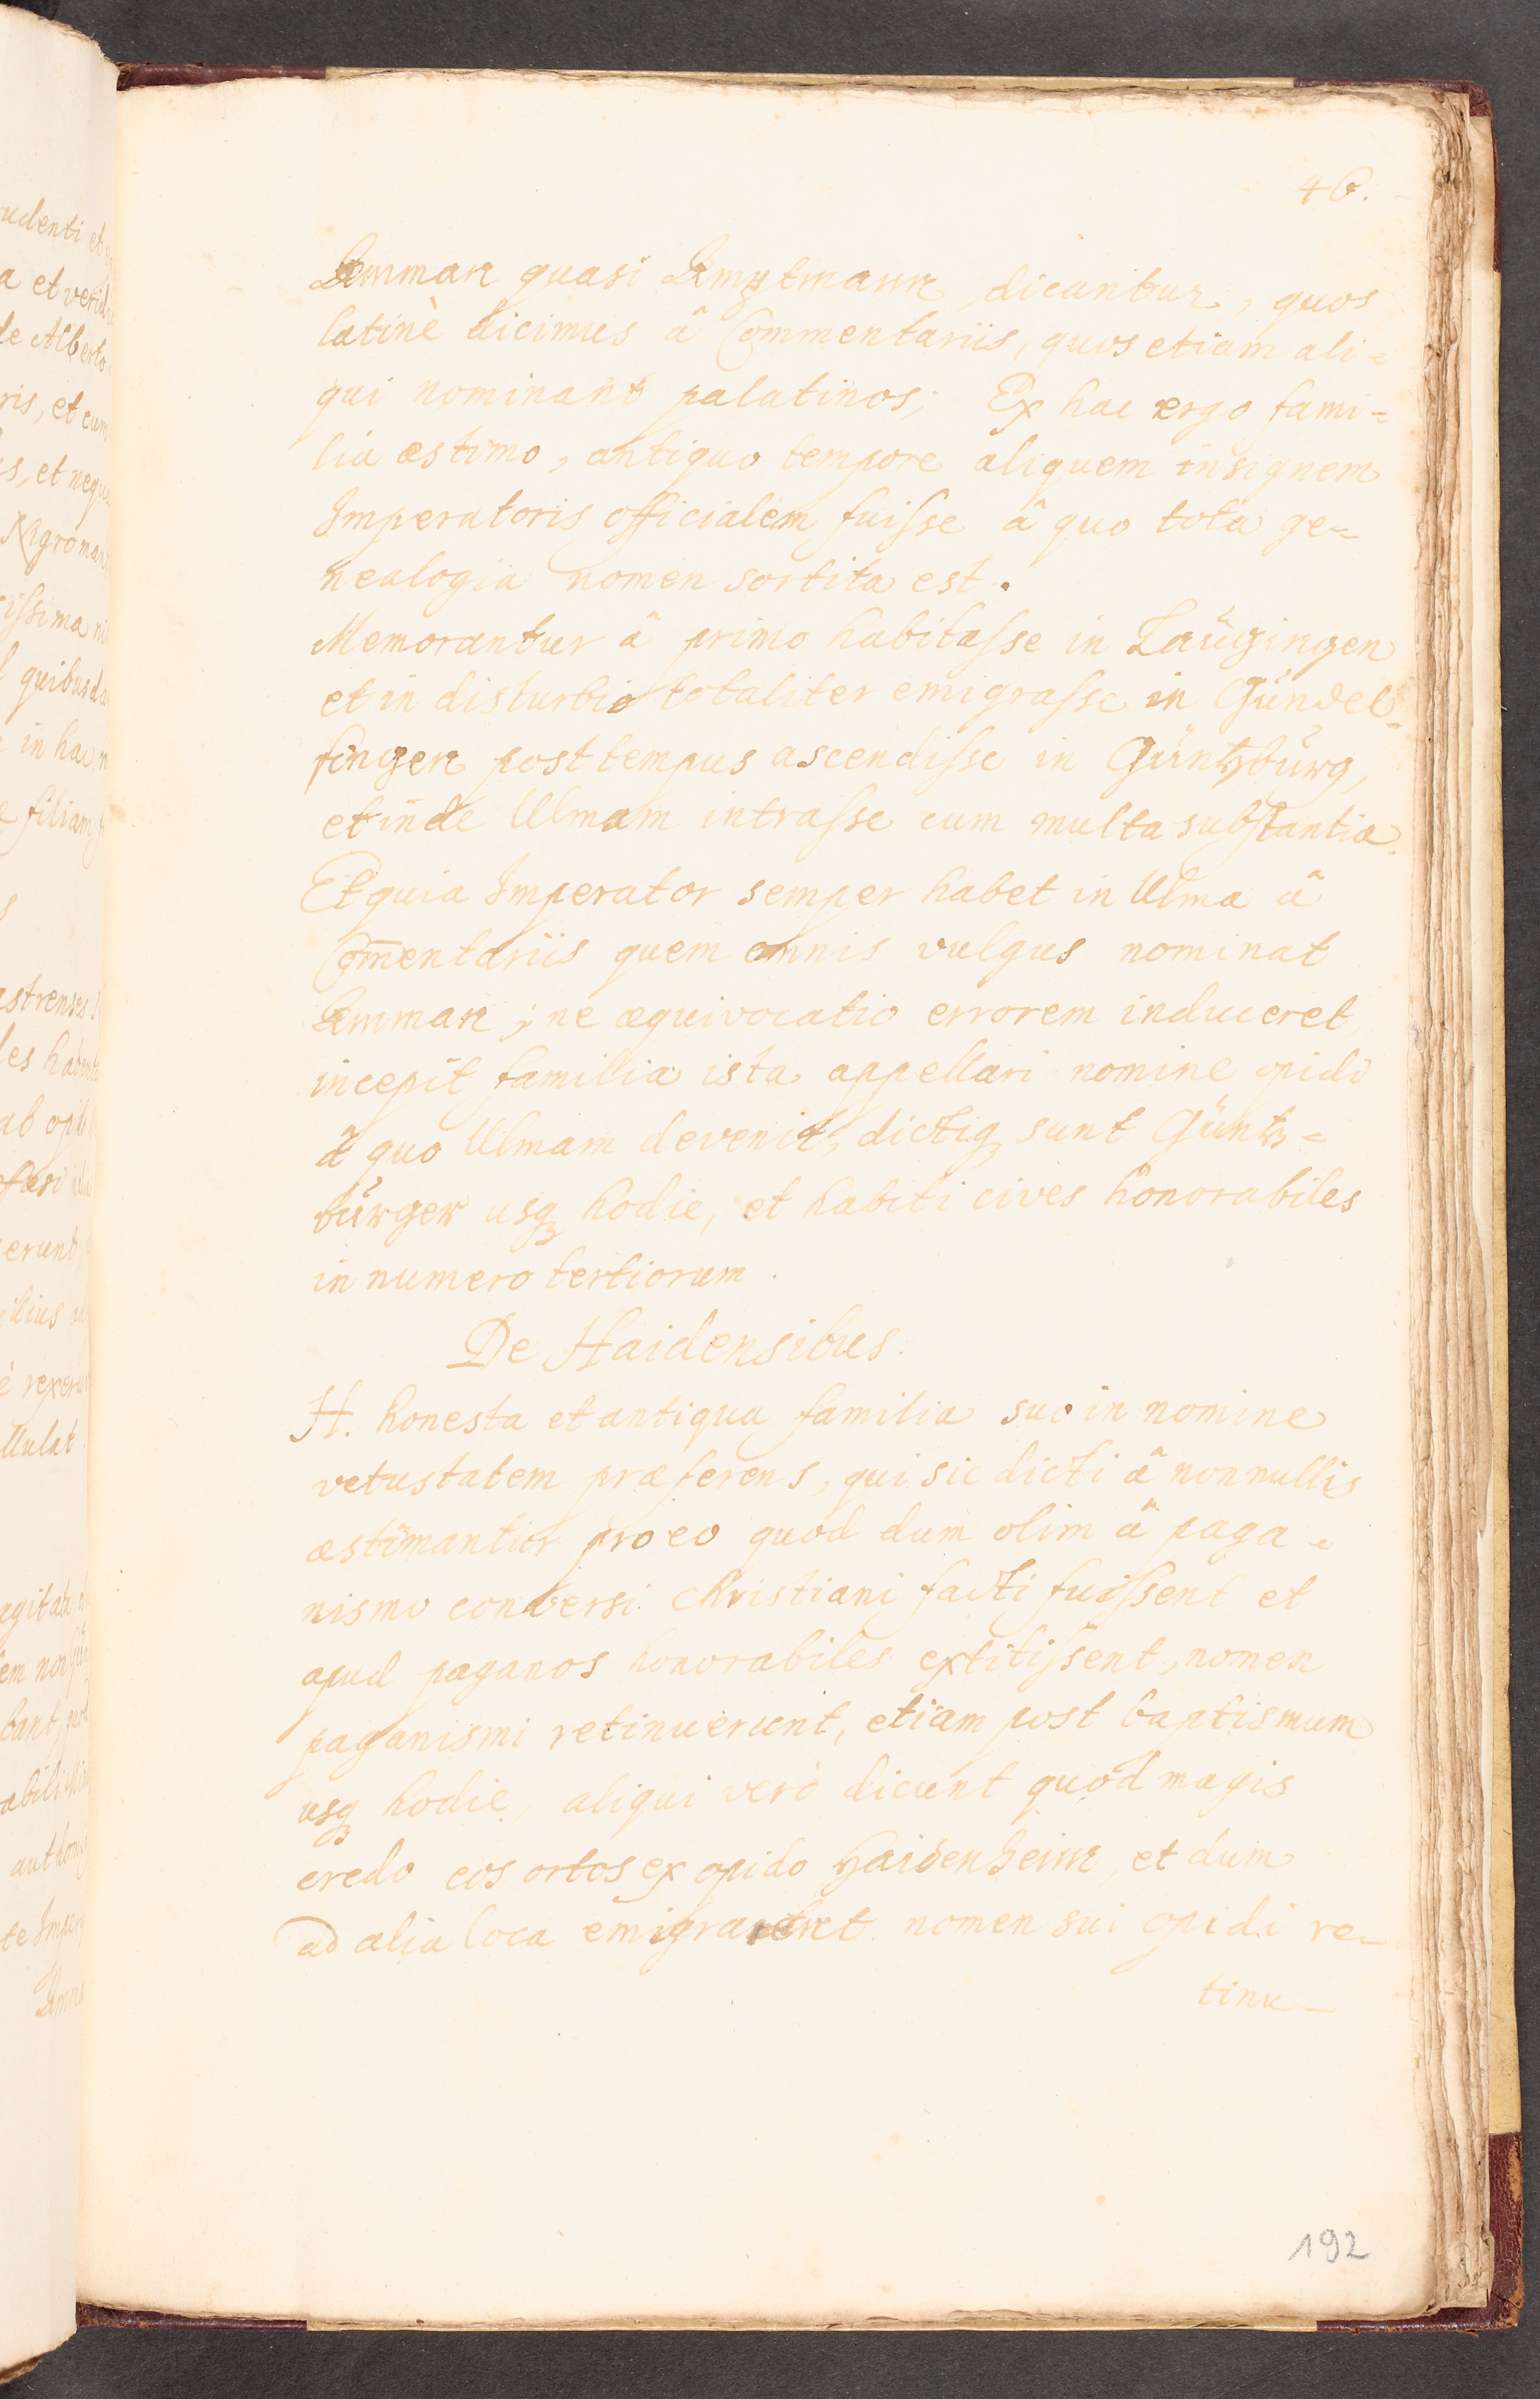 46.
Amman quasi Amptmann dicantur, quos
latinè dicimus â Commentariis, quos etiam ali=
qui nominant palatinos; Ex hac ergo fami=
lia æstimo, antiquo tempore aliquem insignem
Imperatoris officialem fuisse â quo tota ge=
nealogia nomen sortita est.
Memorantur â primo habitasse in Laŭgingen
et in disturbio totaliter emigrasse in Gŭndel=
fingen post tempus ascendisse in Güntzbŭrg,
et inde Ulmam intrasse cum multa substantia.
Et quia Imperator semper habet in Ulma â
Com̄entariis quem omnis vulgus nominat
Amman; ne æquivocatio errorem induceret,
incepit familia ista appellari nomine opidi
â quo Ulmam devenit, dictiq₃ sunt Güntz=
bŭrger usq₃ hodie, et habiti cives honorabiles
in numero tertiorum.
De Haidensibus.
H. honesta et antiqua familia suo in nomine
vetustatem præferens, qui sic dicti â nonnullis
æstimantur pro eo quod dum olim â paga=
nismo conversi christiani facti fuissent et
apud paganos honorabiles extitissent, nomen
paganismi retinuerunt, etiam post baptismum
usq₃ hodie, aliqui verò dicunt quod magis
credo eos ortos ex opido Haidenheim, et dum
ad alia loca nomen sui opidi re=
tinu=
192
udenti et
a et verid
de Alberto
ris, et cum
s, et nequ
Nigroman
issima
quibusd
in hac
filiam
astrenses
les habent
ab opi
erunt
ilius
è rexer
llulat
agitab
em non
bant
abili
aut
te Imper
Amma